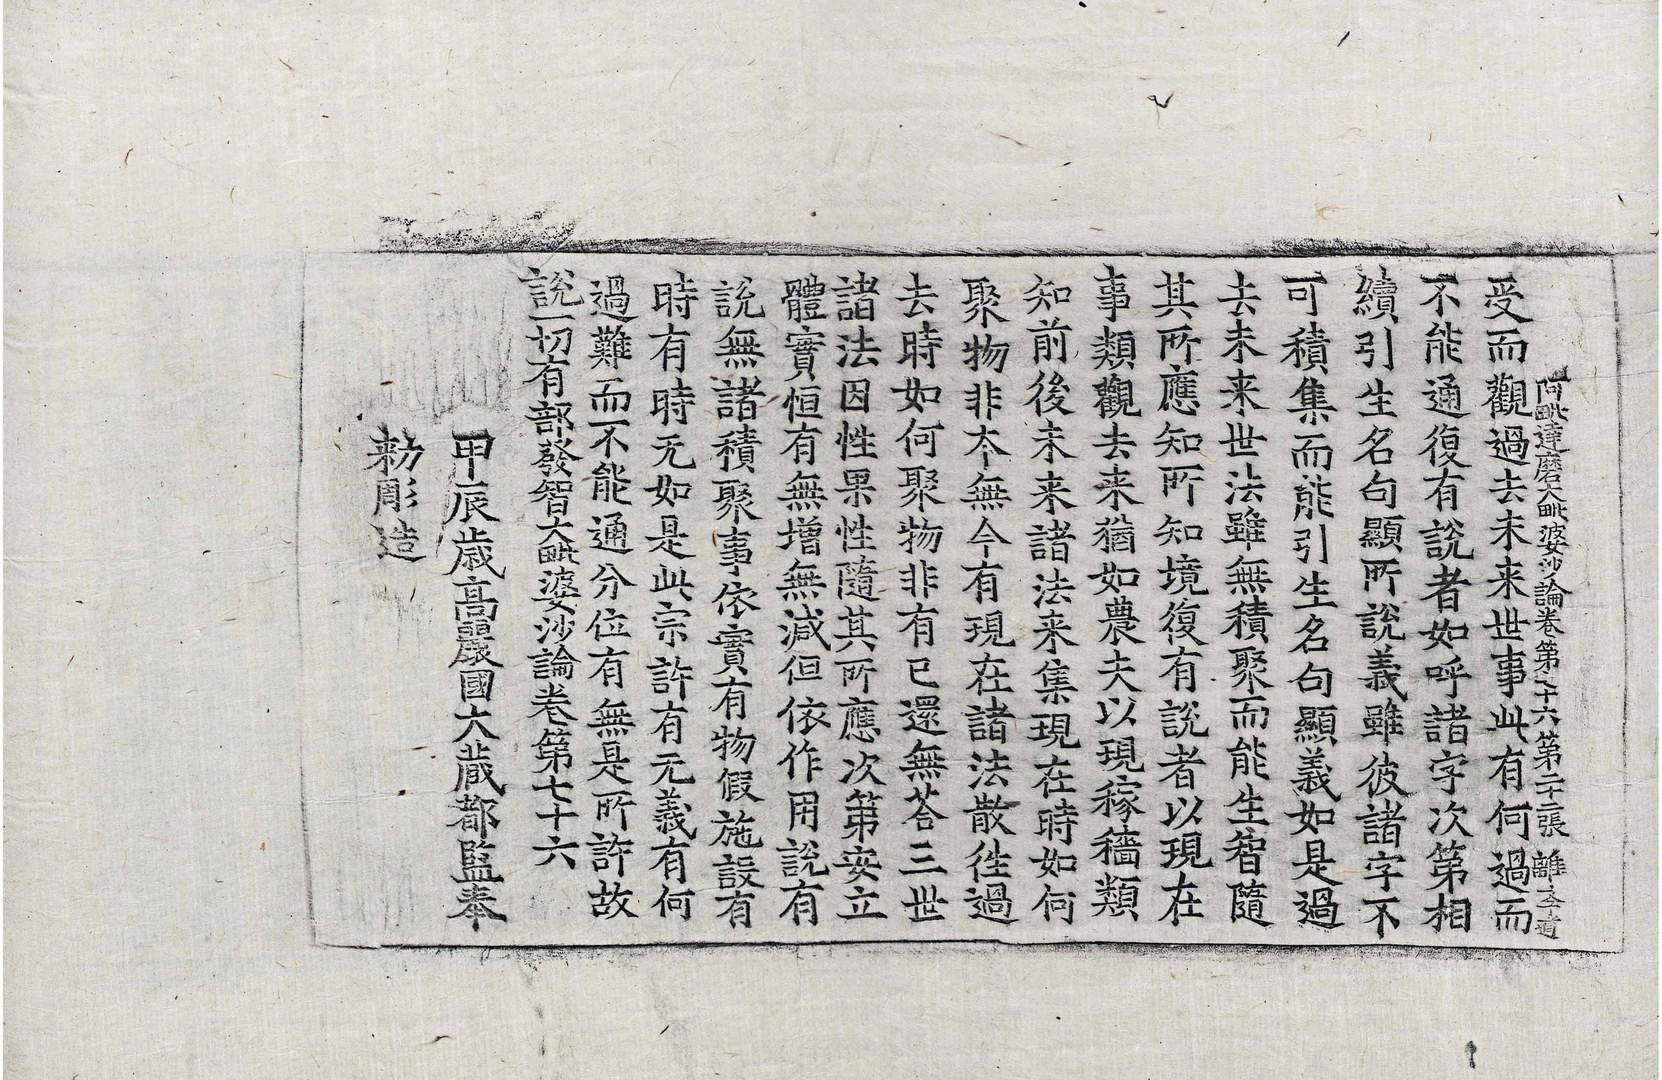 阿毗達磨大毗婆沙論卷第七十六第二十二張 離
受而觀過去未来世事此有何過而
不能通復有說者如呼諸字次第相
續引生名句顯所說義雖彼諸字不
可積集而能引生名句顯義如是過
去未来世法雖無積聚而能生智隨
其所應知所知境復有說者以現在
事類觀去来猶如農夫以現稼穡類
知前後未来諸法来集現在時如何
聚物非夲無今有現在諸法散徃過
去時如何聚物非有已還無荅三世
諸法因性果性隨其所應次第安立
體實恒有無增無減但依作用說有
說無諸積聚事依實有物假施設有
時有時无如是此宗許有无義有何
過難而不能通分位有無是所許故
說一切有部發智大毗婆沙論卷第七十六
甲辰歲高麗國大藏都監奉
勑彫造